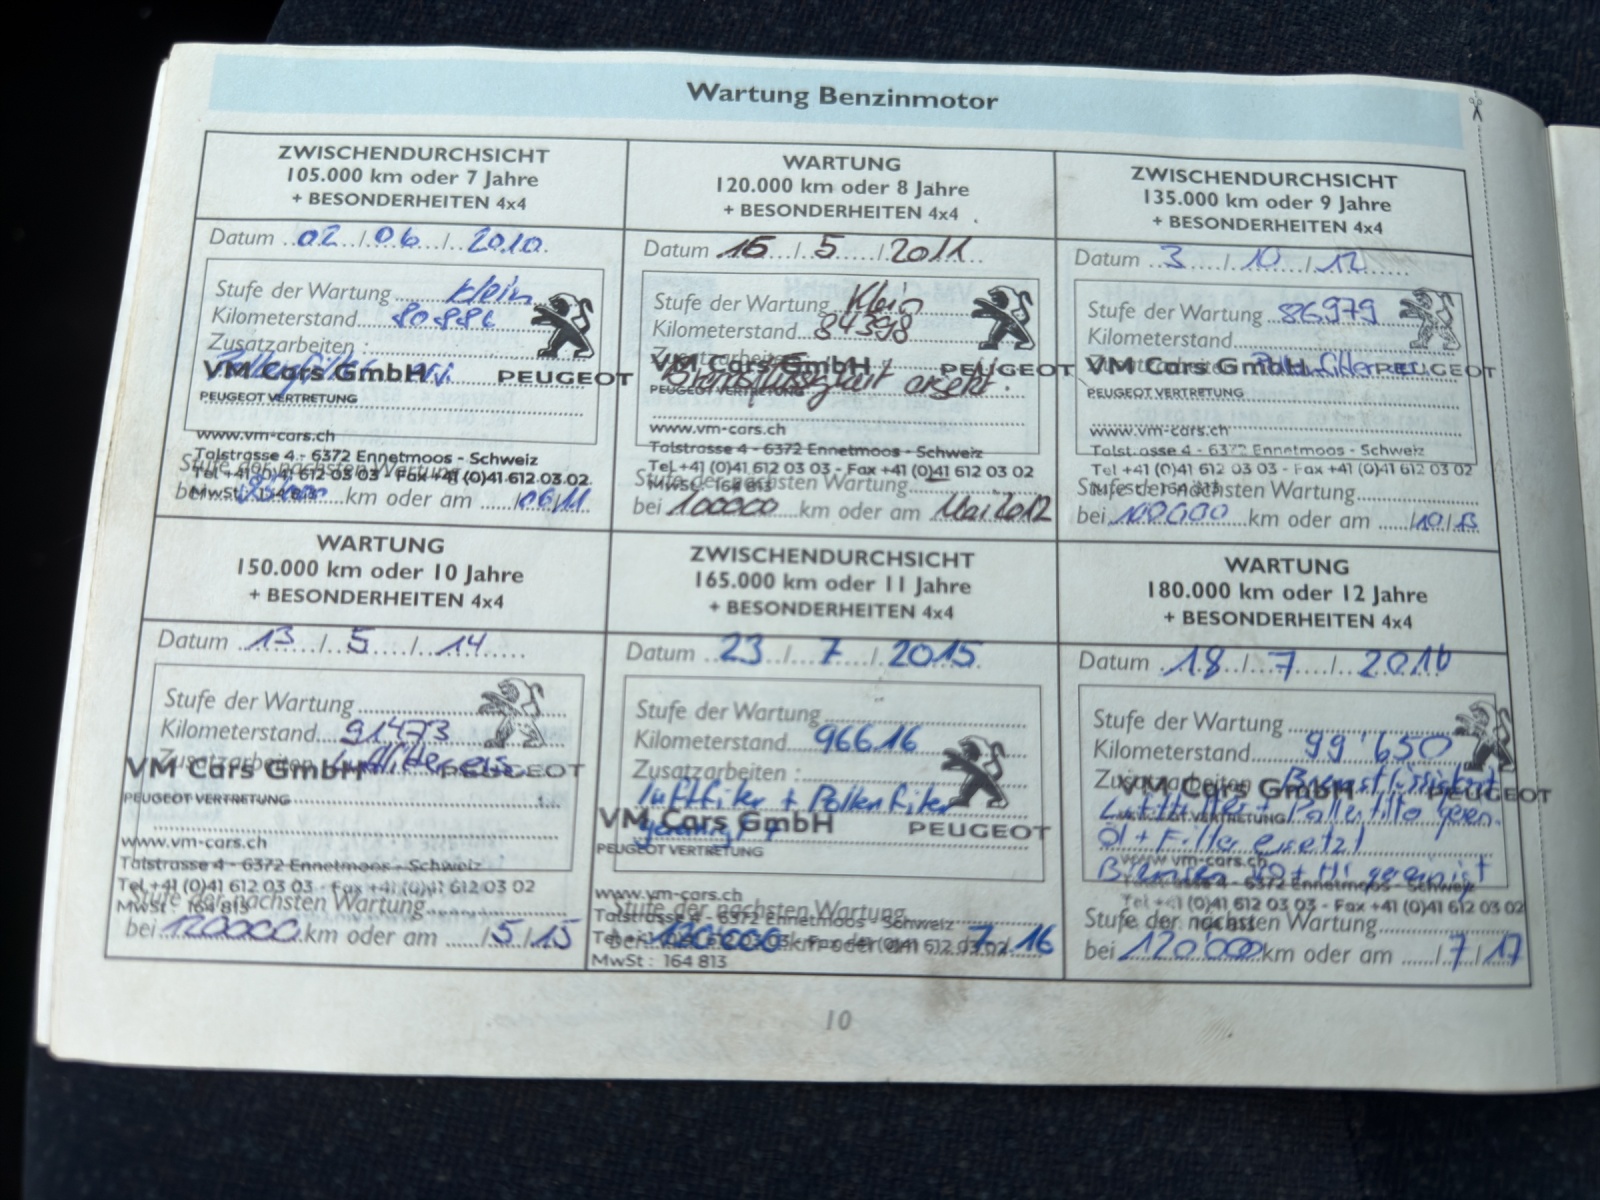 Wartung Benzinmotor
ZWISCHENDURCHSICHT
105.000 km oder 7 Jahre
+ BESONDERHEITEN 4x4
Datum 02 / 06 / 2010
Stufe der Wartung klein
Kilometerstand
Zusatzarbeiten :
VM Cars GmbH PEUGEOT
PEUGEOT VERTRETUNG
www.vm-cars.ch
Talstrasse 4 - 6372 Ennetmoos - Schweiz
Stufe der nächsten Wartung
Tel +41 (0)41 612 03 03 - Fax +41 (0)41 612 03 02
MwSt : 164 813
bei km oder am / 06/11
WARTUNG
120.000 km oder 8 Jahre
+ BESONDERHEITEN 4x4
Datum 16 / 5 / 2011
Stufe der Wartung Klein
Kilometerstand 84398
Zusatzarbeiten
VM Cars GmbH PEUGEOT
Bremsflüssigkeit ersetzt.
PEUGEOT VERTRETUNG
www.vm-cars.ch
Talstrasse 4 - 6372 Ennetmoos - Schweiz
Tel +41 (0)41 612 03 03 - Fax +41 (0)41 612 03 02
Stufe der nächsten Wartung
MwSt : 164 813
bei 100000 km oder am Mai 2012
ZWISCHENDURCHSICHT
135.000 km oder 9 Jahre
+ BESONDERHEITEN 4x4
Datum 3 / 10 / 12
Stufe der Wartung 86979
Kilometerstand
Zusatzarbeiten Pollenfilter
VM Cars GmbH PEUGEOT
PEUGEOT VERTRETUNG
www.vm-cars.ch
Talstrasse 4 - 6372 Ennetmoos - Schweiz
Tel +41 (0)41 612 03 03 - Fax +41 (0)41 612 03 02
Stufe der nächsten Wartung
MwSt : 164 813
bei 100000 km oder am / 10 / 13
WARTUNG
150.000 km oder 10 Jahre
+ BESONDERHEITEN 4x4
Datum 13 / 5 / 14
Stufe der Wartung
Kilometerstand 91473
Zusatzarbeiten Luftfilter
VM Cars GmbH PEUGEOT
PEUGEOT VERTRETUNG
www.vm-cars.ch
Talstrasse 4 - 6372 Ennetmoos - Schweiz
Tel +41 (0)41 612 03 03 - Fax +41 (0)41 612 03 02
Stufe der nächsten Wartung
MwSt : 164 813
bei 120000 km oder am / 5 / 15
ZWISCHENDURCHSICHT
165.000 km oder 11 Jahre
+ BESONDERHEITEN 4x4
Datum 23 / 7 / 2015
Stufe der Wartung
Kilometerstand 96616
Zusatzarbeiten :
Luftfilter + Pollenfilter
VM Cars GmbH PEUGEOT
PEUGEOT VERTRETUNG
www.vm-cars.ch
Stufe der nächsten Wartung
Talstrasse 4 - 6372 Ennetmoos - Schweiz
Tel +41 (0)41 612 03 03 - Fax +41 (0)41 612 03 02
bei 120000 km oder am 7 16
MwSt : 164 813
WARTUNG
180.000 km oder 12 Jahre
+ BESONDERHEITEN 4x4
Datum 18 / 7 / 2016
Stufe der Wartung
Kilometerstand 99'650
Zusatzarbeiten Bremsflüssigkeit
VM Cars GmbH PEUGEOT
Luftfilter + Pollenfilter gerein.
PEUGEOT VERTRETUNG
Öl + Filter ersetzt
www.vm-cars.ch
Bremsen VO + HI gereinigt
Talstrasse 4 - 6372 Ennetmoos - Schweiz
Tel +41 (0)41 612 03 03 - Fax +41 (0)41 612 03 02
Stufe der nächsten Wartung
bei 120'000 km oder am / 7 / 17
10